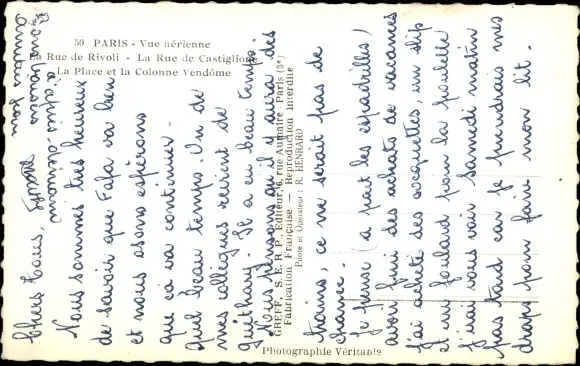 50 PARIS - Vue aérienne
La Rue de Rivoli - La Rue de Castiglione
La Place et la Colonne Vendôme
Chers tous,
Nous sommes très heureux
de savoir que Fafa va bien
et nous osons espérons
que ça va continuer -
Quel beau temps. Un de
mes collègues revient de
Guéthary. Il a eu beau temps.
Nous pensons qu'il y aura des
trains, ce ne serait pas de
chance.
Je pense (à part les espadrilles)
avoir fini des achats de vacances
j'ai acheté des socquettes, un slip
et un foulard pour la poitelle
j'irai vous voir samedi matin
pas tard car je prendrais mes
draps pour faire mon lit.
Bons baisers
à après demain
GREFF, S. E. R. P., Editeur, 6, rue Aumaire Paris (3e)
Fabrication Française — Reproduction Interdite
Pilote et Opérateur : R. HENRARD
Photographie Véritable